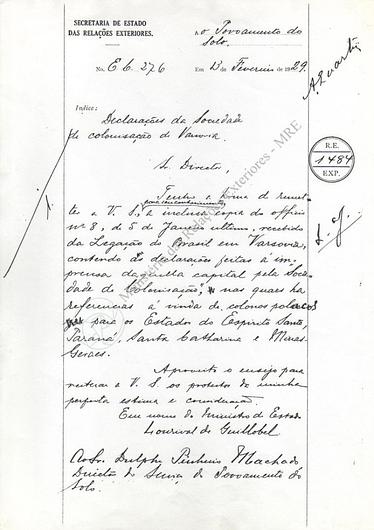 SECRETARIA DE ESTADO
DAS RELAÇÕES EXTERIORES.
Ao Povoamento do
Solo.
No. EC. 276
Em 23 Fevereiro 1929.
Indice:
Declarações da Sociedade
de colonisação de Varsovia
R.E.
1484
EXP.
Sr. Director,
Tenho a honra de remet-
para seu conhecimento,
ter a V. S., a inclusa copia do officio
nº 8, de 5 de Janeiro ultimo, recebido
da Legação do Brasil em Varsovia,
contendo as declarações feitas á im-
prensa daquella capital pela Socie-
dade de Colonisação, nas quaes ha
referencias á vinda de colonos polacos
para os Estados do Espirito Santo,
Paraná, Santa Catharina e Minas
Geraes.
Aproveito o ensejo para
reiterar a V. S. os protestos da minha
perfeita estima e consideração.
Em nome do Ministro de Estado
Lourival de Guillobel
Ao Sr. Dulphe Pinheiro Machado
Director do Serviço de Povoamento do
Solo.
Ministério das Relações Exteriores - MRE